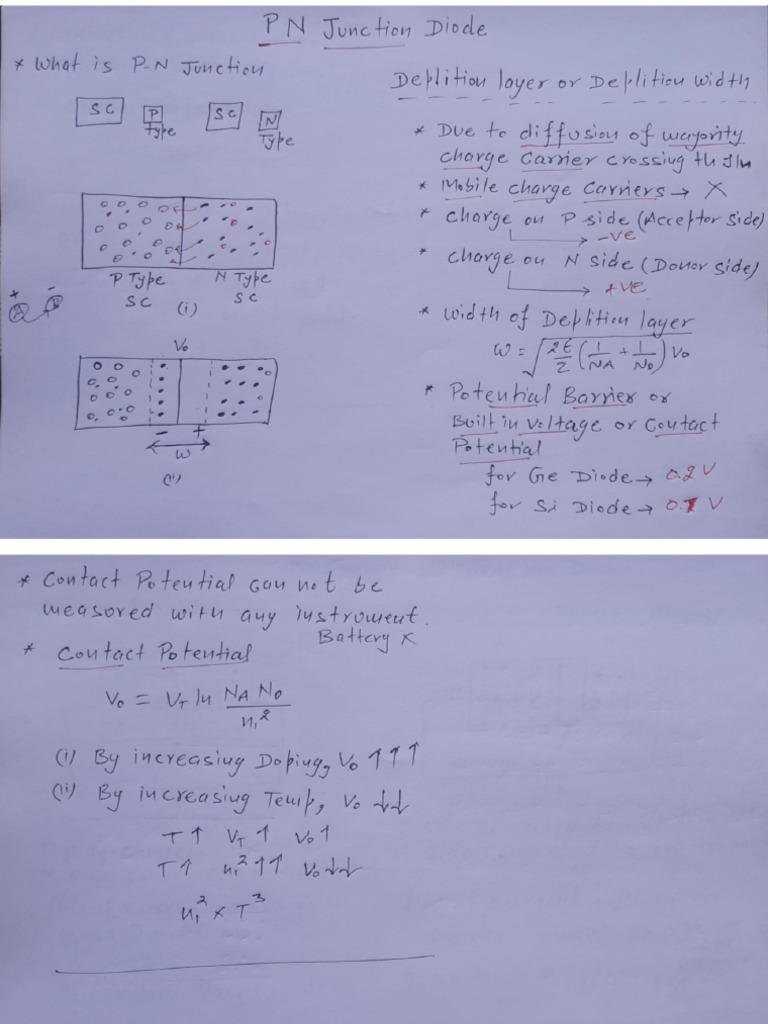 PN Junction Diode
* What is P-N Junction
SC P Type SC N Type
P Type SC N Type SC
(i)
V₀
- +
W
(ii)
Deplition layer or Deplition width
* Due to diffusion of majority
charge Carrier crossing th Jn
* Mobile charge Carriers → X
* charge on P side (Acceptor side)
→ -ve
* charge on N side (Donor side)
→ +ve
* Width of Deplition layer
W = √(2ε/2 (1/NA + 1/ND) V₀)
* Potential Barrier or
Built in Voltage or Contact
Potential
for Ge Diode → 0.2 V
for Si Diode → 0.7 V
* Contact Potential can not be
measored with any instroment.
Battery X
* Contact Potential
V₀ = V_T ln (NA ND / nᵢ²)
(i) By increasing Doping, V₀ ↑↑↑
(ii) By increasing Temp, V₀ ↓↓
T↑ V_T ↑ V₀↑
T↑ nᵢ²↑↑ V₀↓↓
nᵢ² ∝ T³